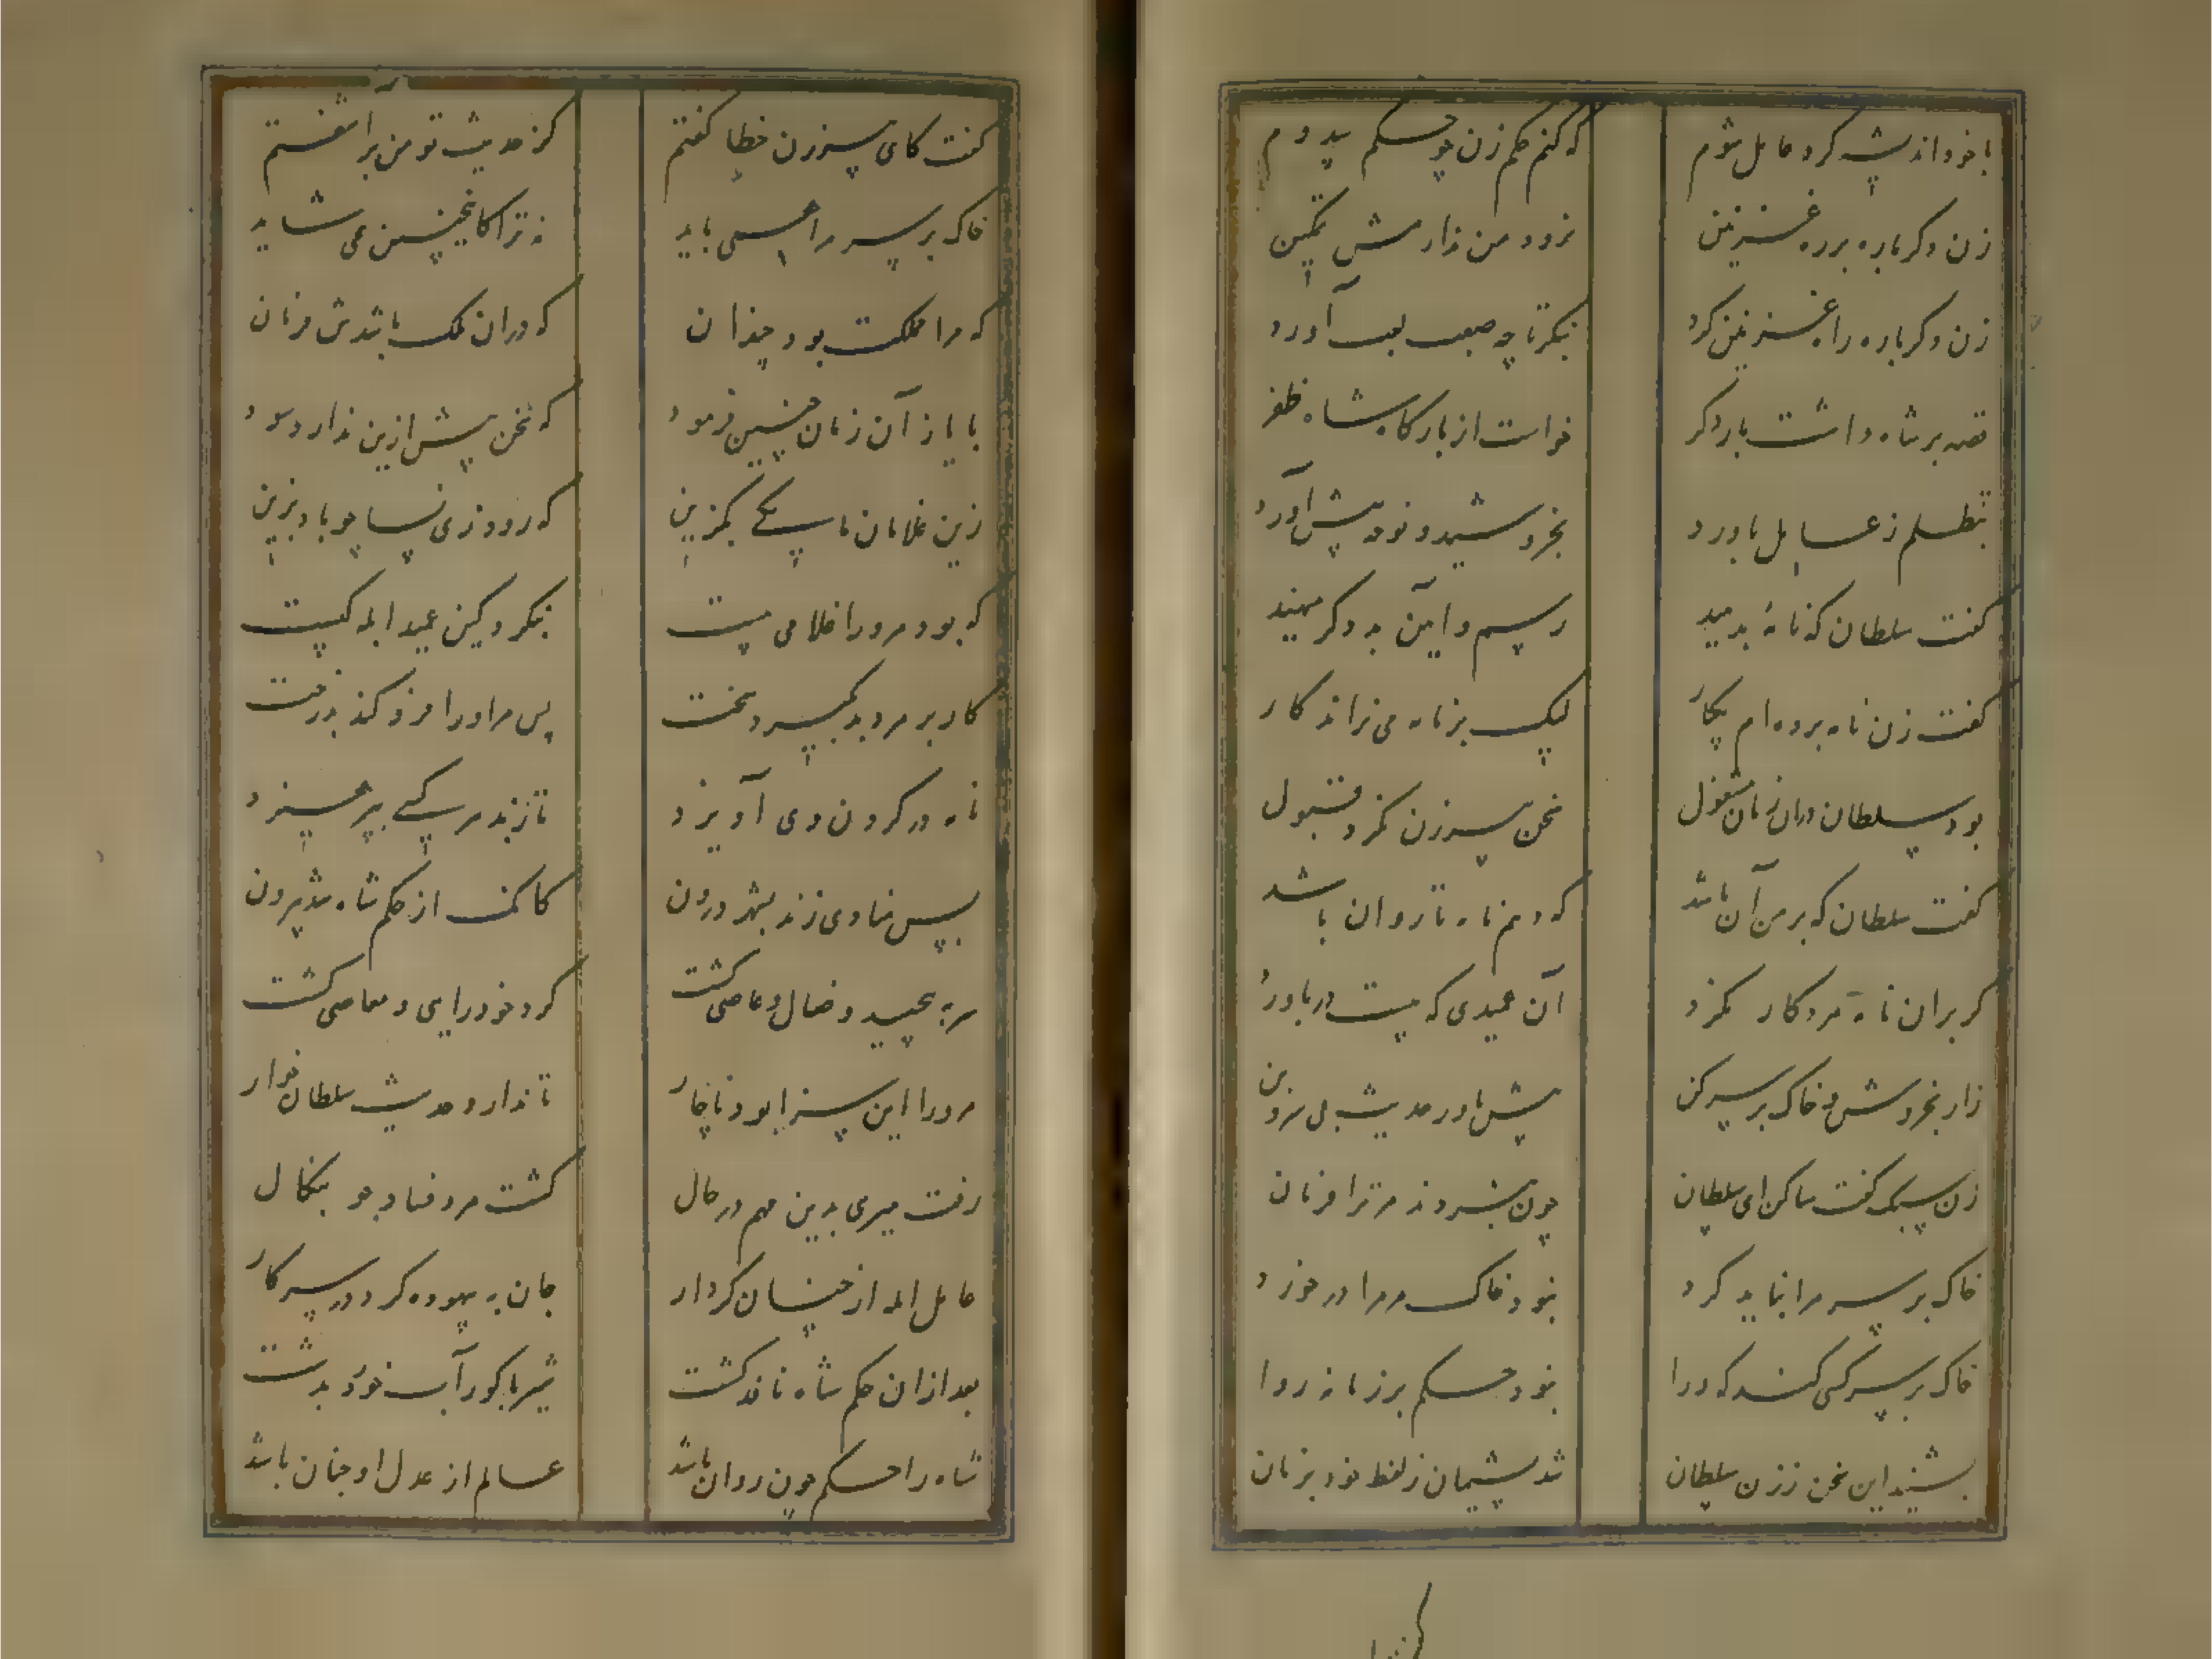 با خود اندیشه کرد عامل شوم که کنم حکم زن چو حکم سدوم
زن دگرباره بر ره غزنین نرود من ندارمش تمکین
زن دگرباره راه غزنین کرد بنگر تا چه صعب لعب آورد
قصه بر شاه داشت بار دگر خواست از بارگاه شاه ظفر
بتظلم ز عامل باورد بخروشید و نوحه پیش آورد
گفت سلطان که نامهٔ بدهید رسم و آیین بد دگر منهید
گفت زن نامه برده‌ام یکبار لیک بر نامه می‌نراند کار
بود سلطان دران زمان مشغول سخن پیرزن نکرد قبول
گفت سلطان که بر من آن باشد که دهم نامه تا روان باشد
گر بران نامه مرد کار نکرد آن عمیدی که هست در باورد
زار بخروش و خاک بر سر کن پیش ما در حدیث بی سر و بن
زن سبک گفت ساکن ای سلطان چون نبردند مر ترا فرمان
خاک بر سر مرا نباید کرد نبود خاک مر مرا در خورد
خاک بر سر کسی کند که ورا نبود حکم بر زمانه روا
بشنید این سخن ز زن سلطان شد پشیمان ز لفظ خود بزمان
گفت کای پیرزن خطا گفتم کز حدیث تو من برآشفتم
خاک بر سر مرا همی باید نه ترا کاینچنین همی شاید
که مرا مملکت بود چندان که دران ملک باشدش فرمان
با ایاز آن زمان چنین فرمود که سخن پیش ازین ندارد سود
زین غلامان ما یکی بگزین که رود زی نسا چو باد بزین
که بود مر ورا غلامی بیست بنگرد کین عمید ابله کیست
کار بر مرد بد بگیرد سخت پس مر او را فرو کند بدرخت
نامه در گردن وی آویزد تا زبد هر کسی بپرهیزد
پس منادی زند بشهر درون کانک از حکم شاه شد بیرون
سر بپیچید و ضال و عاصی گشت گرد خودرایی و معاصی گشت
مر ورا این سزا بود ناچار تا ندارد حدیث سلطان خوار
رفت میری بدین مهم در حال گشت مرد فسادجو بنکال
عامل ابله از چنان کردار جان به بیهوده کرد در سر کار
بعد ازان حکم شاه نافذ گشت شیر با گور آب خورد بدشت
شاه را حکم چون روان باشد عالم از عدل او جنان باشد